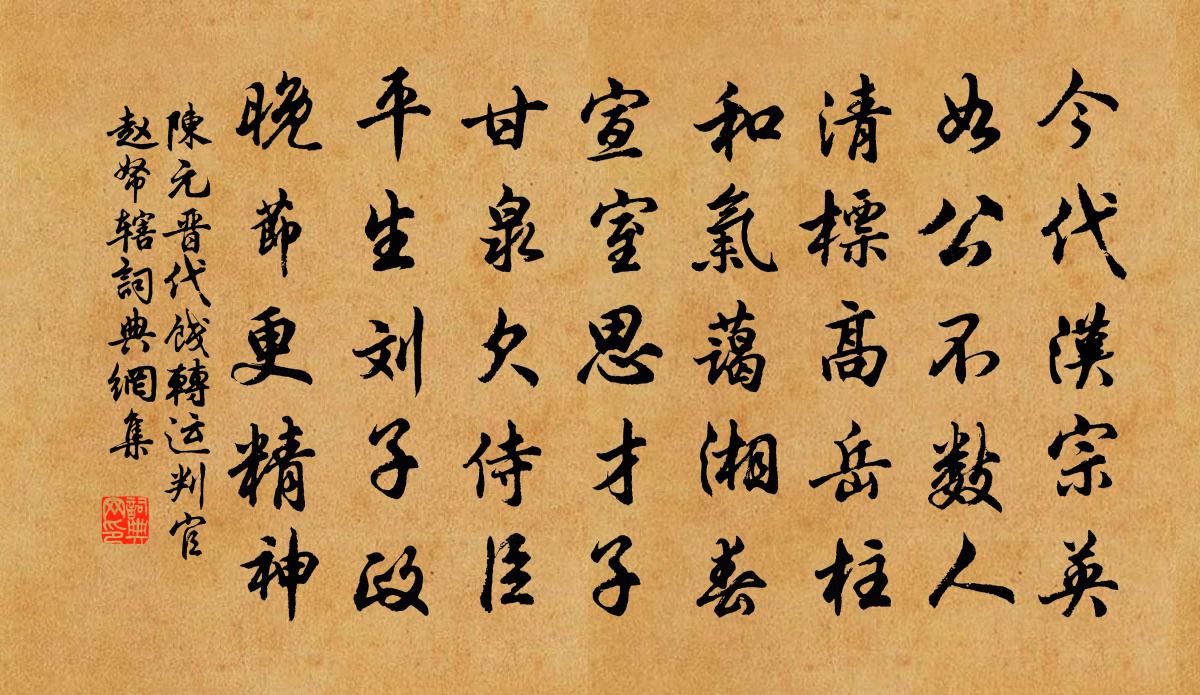 今代漢宗英
如公不数人
清標高岳柱
和氣藹湘春
宣室思才子
甘泉欠侍臣
平生刘子政
晚節更精神
陳元晋代餞轉运判官
赵帑辖詞典網集
詞典网印